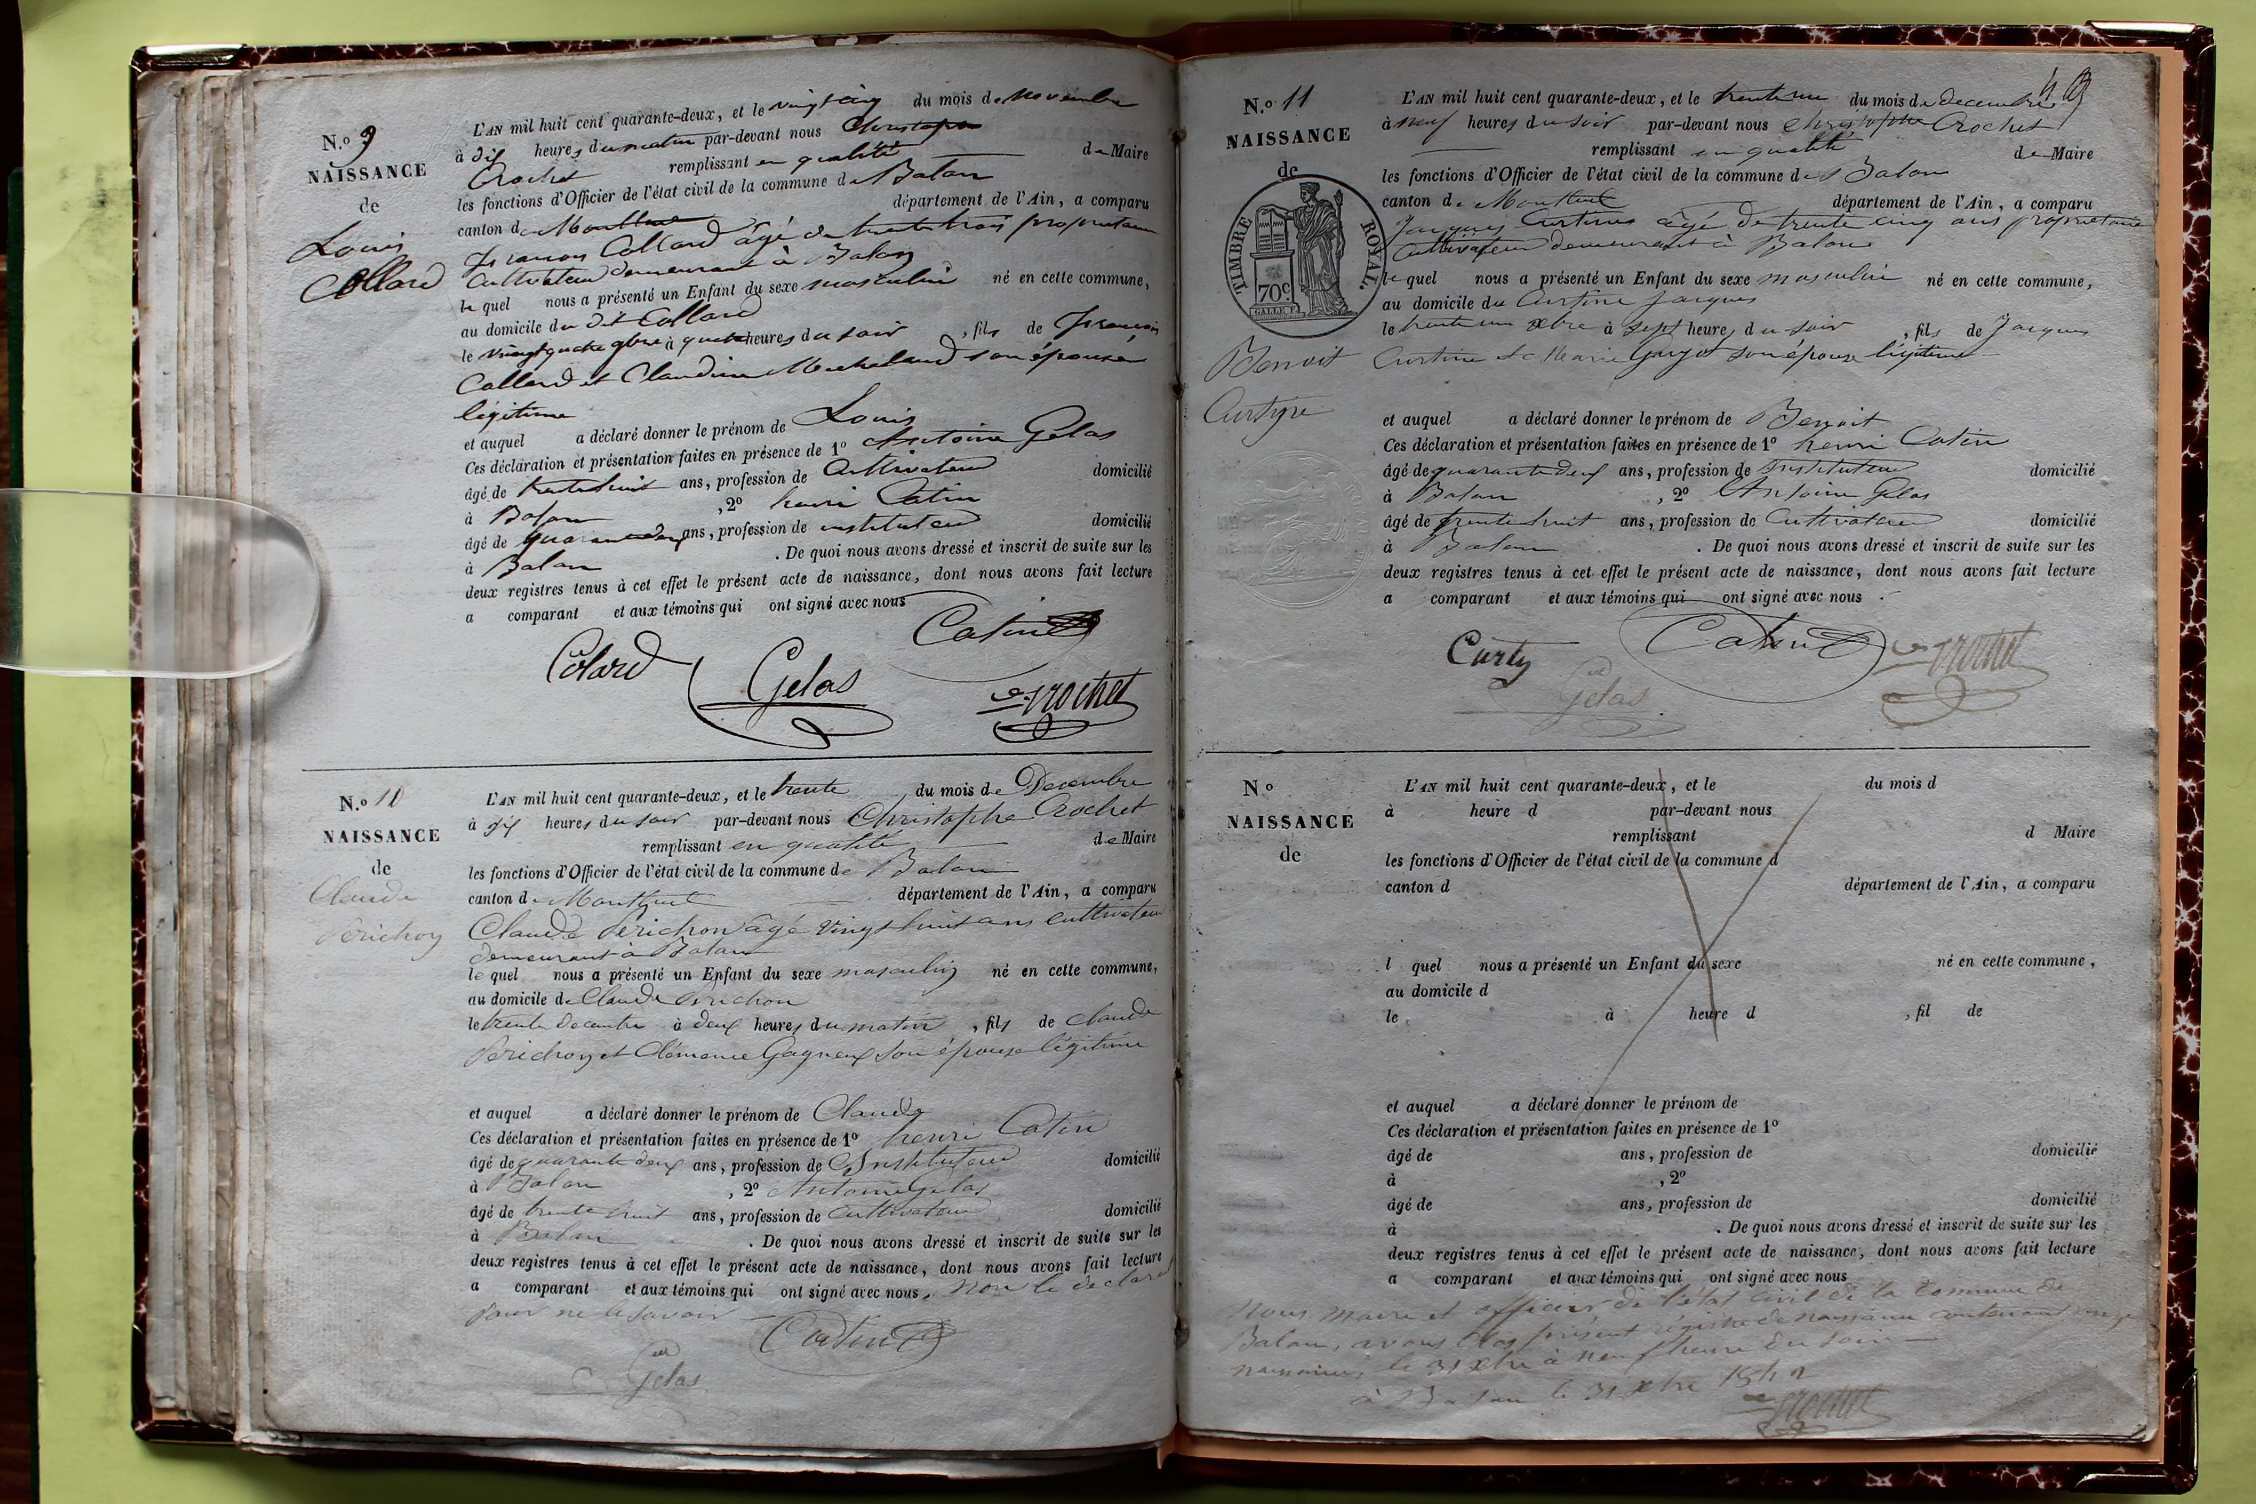 N.o 9
NAISSANCE
de
Louis
Collard
L'AN mil huit cent quarante-deux, et le vingt cinq du mois de Novembre
à dix heures du matin par-devant nous Christophe
Crochet remplissant en qualité de Maire
les fonctions d'Officier de l'état civil de la commune de Balan
canton de Montluel département de l'Ain, a comparu
francois Collard âgé de trente trois proprietaire
Cultivateur demeurant à Balan
le quel nous a présenté un Enfant du sexe masculin né en cette commune,
au domicile du dit Collard
le vingt quatre 9bre à heures du soir , fils de francois
Collard et Claudine son épouse
légitime
et auquel a déclaré donner le prénom de Louis
Ces déclaration et présentation faites en présence de 1o Antoine Gelas
âgé de trente huit ans, profession de Cultivateur domicilié
à Balan , 2o henri Catin
âgé de quarante deux ans, profession de instituteur domicilié
à Balan . De quoi nous avons dressé et inscrit de suite sur les
deux registres tenus à cet effet le présent acte de naissance, dont nous avons fait lecture
a comparant et aux témoins qui ont signé avec nous
Catin
Colard Gelas Crochet
N.o 10
NAISSANCE
de
Claude
Perichon
L'AN mil huit cent quarante-deux, et le trente du mois de Decembre
à dix heures du soir par-devant nous Christophe Crochet
remplissant en qualité de Maire
les fonctions d'Officier de l'état civil de la commune de Balan
canton de Montluel département de l'Ain, a comparu
Claude Perichon âgé vingt huit ans cultivateur
demeurant à Balan
le quel nous a présenté un Enfant du sexe masculin né en cette commune,
au domicile de Claude Perichon
le trente decembre à deux heures du matin , fils de Claude
Perichon et Clémence Gagneux son épouse légitime
et auquel a déclaré donner le prénom de Claude
Ces déclaration et présentation faites en présence de 1o henri Catin
âgé de quarante deux ans, profession de Instituteur domicilié
à Balan , 2o Antoine Gelas
âgé de trente huit ans, profession de Cultivateur domicilié
à Balan . De quoi nous avons dressé et inscrit de suite sur les
deux registres tenus à cet effet le présent acte de naissance, dont nous avons fait lecture
a comparant et aux témoins qui ont signé avec nous, non le declarant
pour ne le savoir
Catin
Gelas
N.o 11
NAISSANCE
de
TIMBRE ROYAL.
70c.
GALLE F.
Benoit
Curtine
L'AN mil huit cent quarante-deux, et le trente un du mois de decembre
à neuf heures du soir par-devant nous Christophe Crochet
remplissant en qualité de Maire
les fonctions d'Officier de l'état civil de la commune de Balan
canton de Montluel département de l'Ain, a comparu
Jacques Curtine âgé de trente cinq ans proprietaire
Cultivateur demeurant à Balan
le quel nous a présenté un Enfant du sexe masculin né en cette commune,
au domicile du Curtine Jacques
le trente un xbre à sept heures du soir , fils de Jacques
Curtine et Marie Guyot son épouse légitime
et auquel a déclaré donner le prénom de Benoit
Ces déclaration et présentation faites en présence de 1o henri Catin
âgé de quarante deux ans, profession de Instituteur domicilié
à Balan , 2o Antoine Gelas
âgé de trente huit ans, profession de Cultivateur domicilié
à Balan . De quoi nous avons dressé et inscrit de suite sur les
deux registres tenus à cet effet le présent acte de naissance, dont nous avons fait lecture
a comparant et aux témoins qui ont signé avec nous
Curty Catin Crochet
Gelas
No
NAISSANCE
de
L'AN mil huit cent quarante-deux, et le du mois d
à heure d par-devant nous
remplissant d Maire
les fonctions d'Officier de l'état civil de la commune d
canton d département de l'Ain, a comparu
l quel nous a présenté un Enfant du sexe né en cette commune,
au domicile d
le à heure d , fil de
et auquel a déclaré donner le prénom de
Ces déclaration et présentation faites en présence de 1o
âgé de ans, profession de domicilié
à , 2o
âgé de ans, profession de domicilié
à . De quoi nous avons dressé et inscrit de suite sur les
deux registres tenus à cet effet le présent acte de naissance, dont nous avons fait lecture
a comparant et aux témoins qui ont signé avec nous
Nous maire et officier de l'état civil de la Commune de
Balan, avons clos présent régistre de naissance contenant onze
naissances le 31 xbre à neuf heure du soir
à Balan le 31 xbre 1842
Crochet